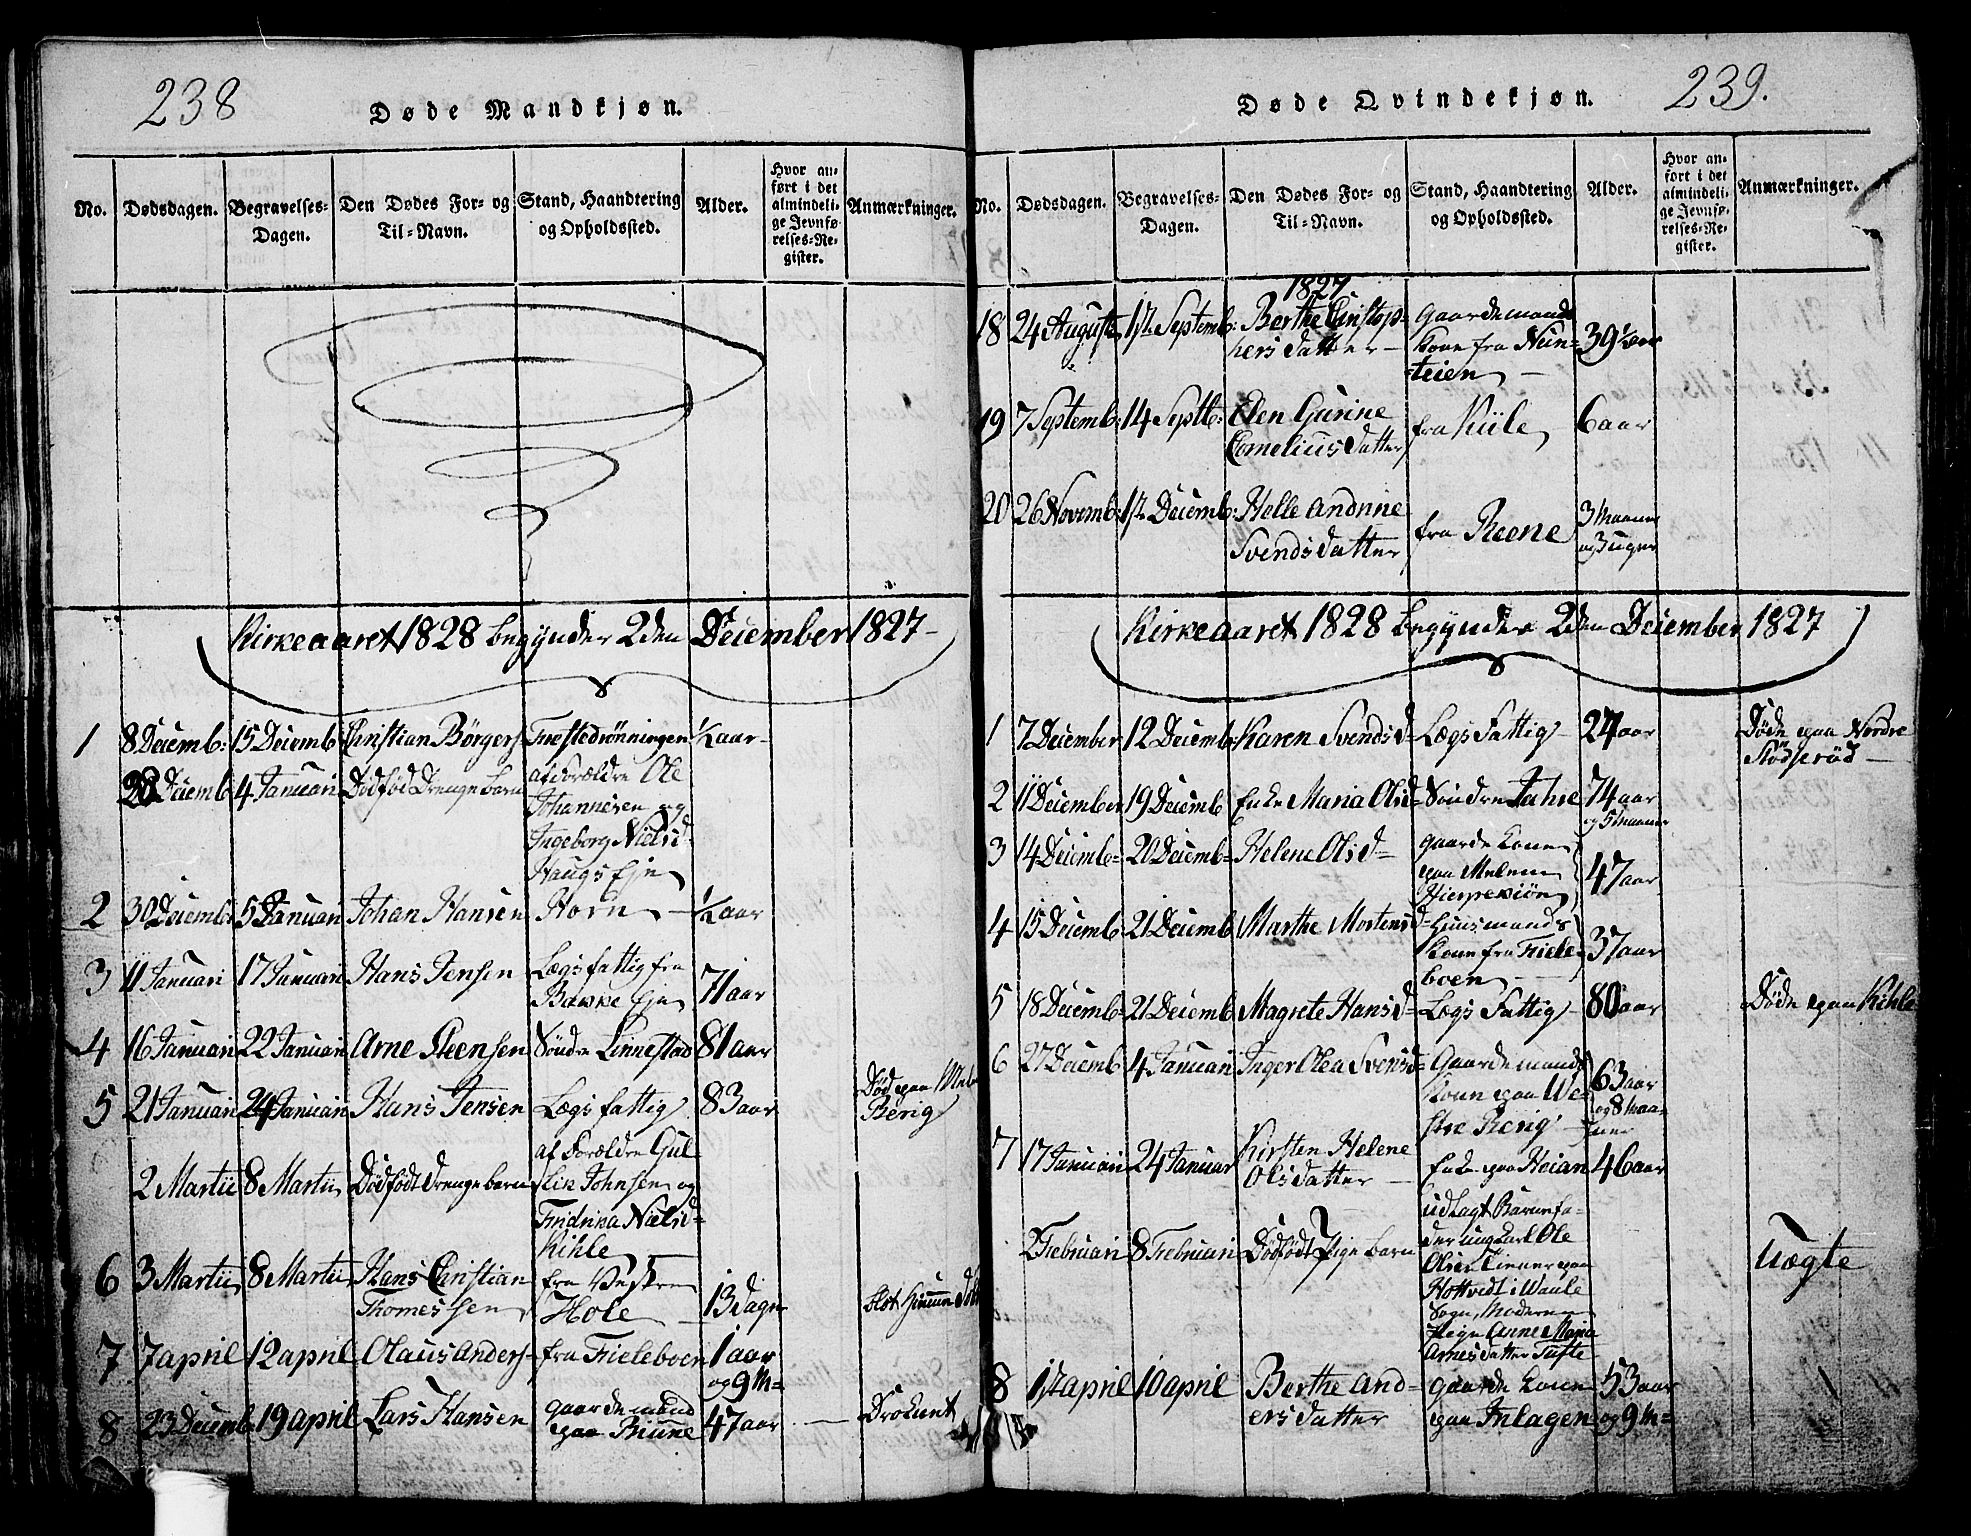 238
Døde Mandkjøn.
No.
Dødsdagen.
Begravelses-
Dagen.
Den Dødes For- og
Til-Navn.
Stand, Haandtering
og Opholdssted.
Alder.
Hvor an-
ført i det
almindeli-
ge Jevnfø-
relses-Re-
gister.
Anmærkninger.
Kirkeaaret 1828 begynder 2den December 1827
1 8 Decemb: 15 Decemb Christian Börgers Fnestedrönningen ½ aar
Decemb 4 Januari Dödföd Drengebarn af Forældre Ole
Johannesen og
Ingeborg Nielsd
Haugs Eje
2 30 Decemb 5 Januari Johan Hansen Horn ½ aar
3 11 Januari 17 Januari Hans Jensen Lægsfattig fra
Bakke Eje 71 aar
4 16 Januari 22 Januari Arne Steensen Söndre Linnestad 81 aar
5 21 Januari 24 Januari Hans Jensen Lægsfattig 83 aar Död paa
Berig
2 Martii 8 Martii Dödfödt Drengebarn af Forældre Gul-
lik Johnsen og
Fredrika Nielsd
Kihle
6 3 Martii 8 Martii Hans Christian
Thomessen fra Vestre
Hole 13 dage
7 7 april 12 april Olaus Anders- fra Fieleboen 1 aar
og 9 M=
8 23 Decemb 19 april Lars Hansen gaardemand
paa Biunne 47 aar Droknet
239.
Døde Qvindekjøn.
No.
Dødsdagen.
Begravelses-
Dagen.
Den Dødes For- og
Til-Navn.
Stand, Haandtering
og Opholdssted.
Alder.
Hvor an-
ført i det
almindeli-
ge Jevnfø-
relses-Re-
gister.
Anmærkninger.
1827
18 24 Augusti 1ste Septemb: Berthe Christop-
hersdatter gaardemands
kone fra Nun-
teien 39 ½ aar
19 7 Septemb: 14 Septb: Elen Gurine
Corneliusdatter fra Kiile 6 aar
20 26 Novemb: 1ste Decemb: Helle Andrine
Svendsdatter fra Reene 3 Maaner
og 3 uger
Kirkeaaret 1828 begynder 2den December 1827
1 7 December 12 Decemb: Karen Svendsd- Lægs Fattig 24 aar Döde paa Nordre
Stödseröd
2 11 December 19 Decemb Enke Maria Olsd= Söndre Jahre 74 aar
og 5 Maaner
3 14 Decemb= 20 Decemb= Helene Olsd= gaardekone
paa
47 aar
4 15 Decemb: 21 Decemb Marthe Mortensd= Huusmands
kone fra Fiele-
boen 37 aar
5 18 Decemb= 21 Decemb Magrete Hansd= Lægs Fattig 80 aar Döde paa Kihle
6 27 Decemb 4 Januari Inger Olea Svensd= Gaardemands
kone paa We-
stre Berig 63 aar
og 8 Maa-
ner
7 17 Januari 24 Januar Kirsten Helene
Olsdatter Enke paa Heian 46 aar
2 Februari 8 Februari Dödfödt Pige barn udlagt Barnefa-
der ungkarl Ole
Olsen Tienner paa
Hottvedt i Waale
Sogn, Moderen
Pige Anne Maria
Arnesdatter Tufte
Uægte
8 april 10 april Berthe And-
ersdatter gaardekone
paa Inlagen 53 aar
og 9 M=